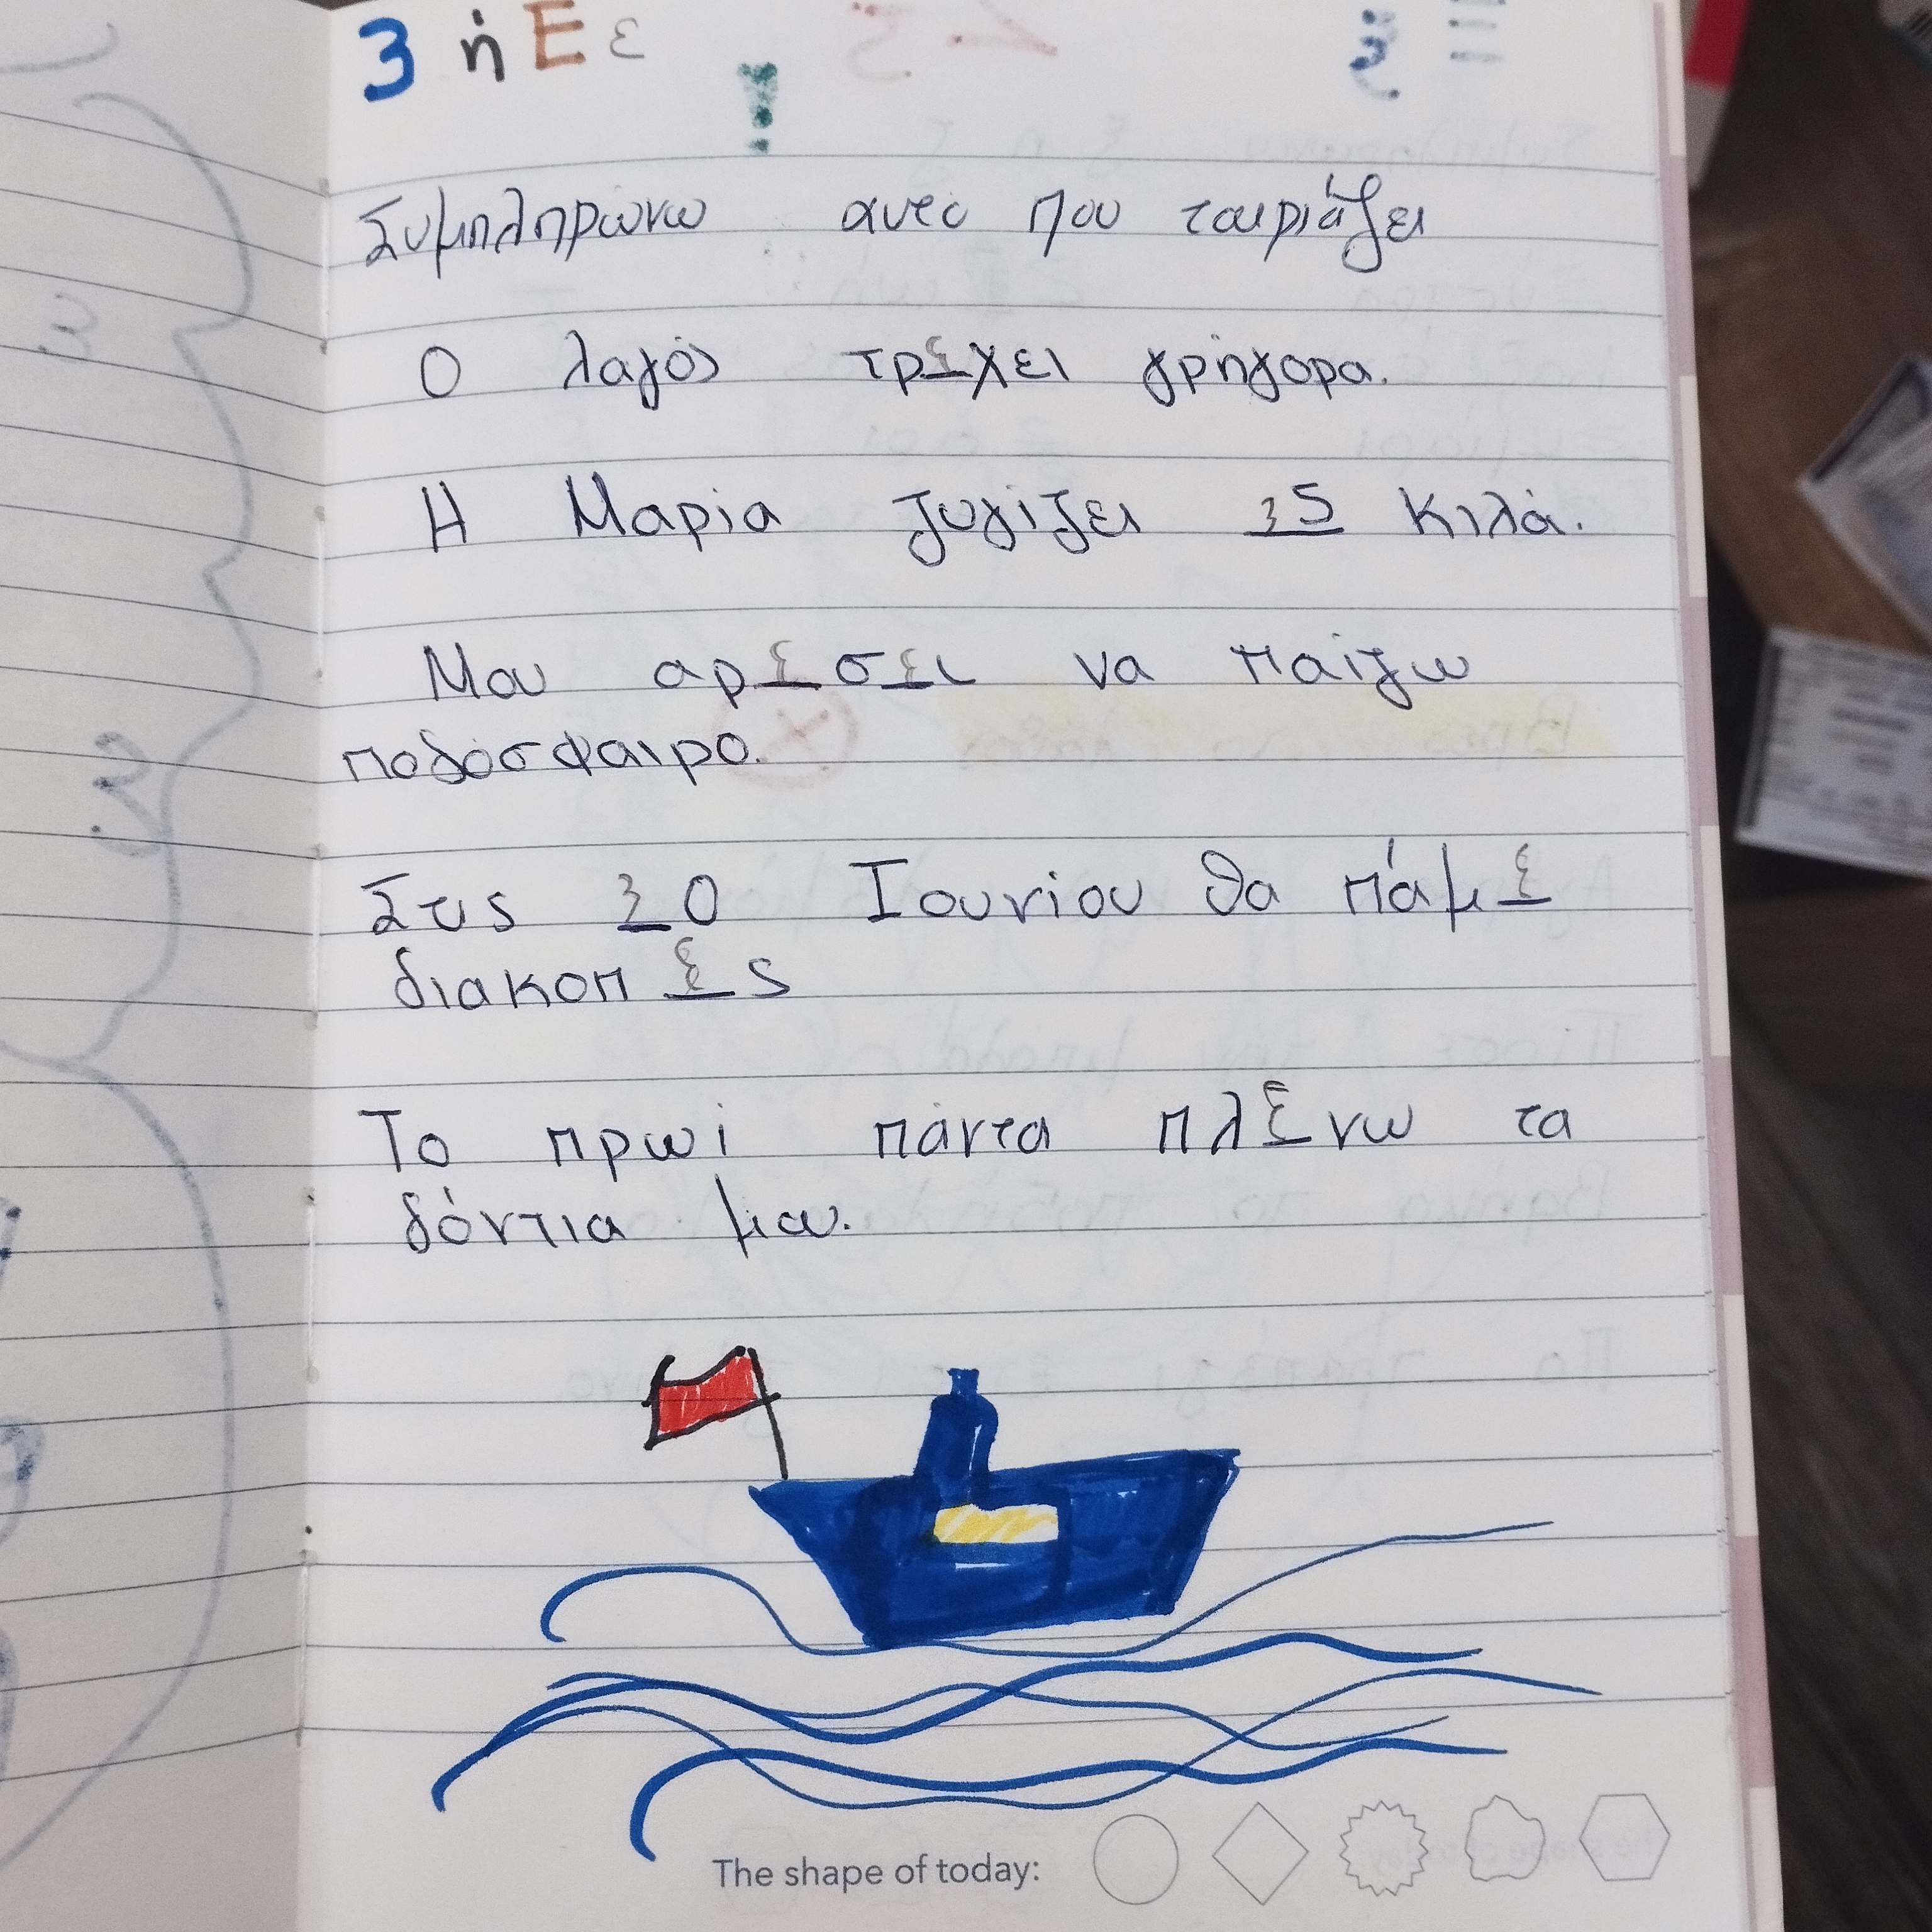 3 ή Ε ε
Συμπληρώνω αυτό που ταιριάζει
Ο λαγός τρέχει γρήγορα.
Η Μαρία ζυγίζει 35 κιλά.
Μου αρέσει να παίζω
ποδόσφαιρο.
Στις 30 Ιουνίου θα πάμε
διακοπές
Το πρωί πάντα πλένω τα
δόντια μου.
The shape of today: